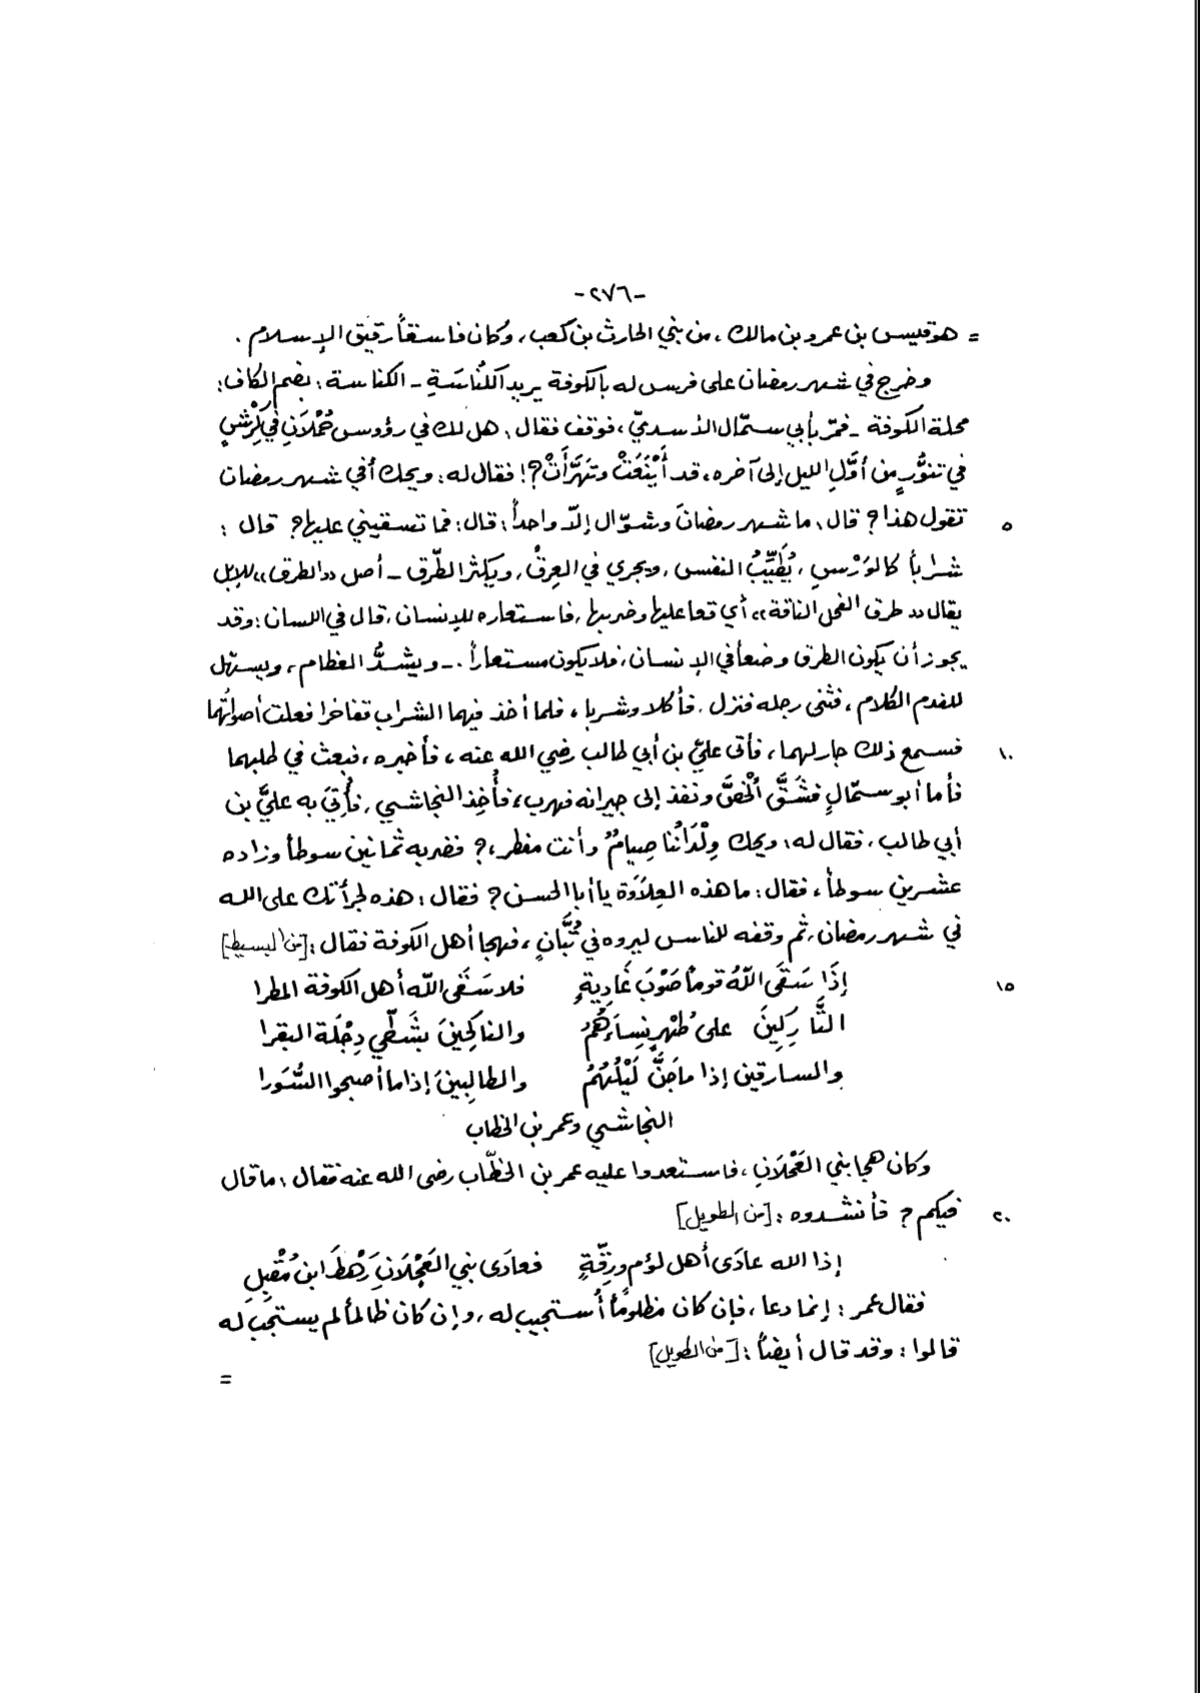 -٢٧٦-
= هو قيس بن عمرو بن مالك ، من بني الحارث بن كعب ، وكان فاسقاً رقيق الإسلام .
وخرج في شهر رمضان على فرس له بالكوفة يريد الكُنَاسَةِ - الكناسة : بضم الكاف :
محلة الكوفة - فمرّ بأبي سمّال الأسديّ ، فوقف فقال : هل لك في رؤوس حُمْلَانٍ في كَرْشٍ
في تنوُّرٍ من أوَّلِ الليل إلى آخره ، قد أَيْنَعَتْ وتَهَرَّأَتْ ؟! فقال له : ويحك أفي شهر رمضان
٥ تقول هذا ؟ قال : ما شهر رمضانَ وشوّال إلّا واحداً ، قال : فما تسقيني عليها ؟ قال :
شراباً كالوَرْسِ ، يُطَيِّبُ النفس ، ويجري في العِرقْ ، ويكثر الطّرق - أصل «الطرق» للإبل
يقال « طرق الفحل الناقة » أي قعا عليها وضربها ، فاستعاره للإنسان ، قال في اللسان : وقد
يجوز أن يكون الطرق وضعاً في الإنسان ، فلا يكون مستعاراً . - ويشدُّ العظام ، ويسهّل
للفدم الكلام ، فثنى رجله فنزل ، فأكلا وشربا ، فلما أخذ فيهما الشراب تفاخرا فعلت أصواتُهما
١٠ فسمع ذلك جار لهما ، فأتى عليَّ بن أبي طالب رضي الله عنه ، فأخبره ، فبعث في طلبهما
فأما أبو سمّالٍ فشَقَّ اُلْخصَّ ونفذ إلى جيرانه فهرب ، فأُخِذ النجاشي ، فأُتِيَ به عليَّ بن
أبي طالب ، فقال له : ويحك وِلْدَانُنا صِيامٌ وأنت مفطر ، ؟ فضربه ثمانين سوطاً وزاده
عشرين سوطاً ، فقال : ما هذه العِلَاوَة يا أبا الحسن ؟ فقال : هذه لجرأتك على الله
في شهر رمضان ، ثم وقفه للناس ليروه في تُبَّانٍ ، فهجا أهل الكوفة فقال : [من البسيط]
١٥ إِذَا سَقَى اللّهُ قوماً صَوْبَ غَادِيةٍ فلا سَقَى اللّه أهل الكوفة المطرا
التَّارِكِينَ على طُهْرٍ نِساءَهُمُ والناكِحينَ بشَطَّي دِجْلَة البقرا
والسارقين إذا ما جَنَّ لَيْلُهُمُ والطالِبينَ إذا ما أصبحوا السُّوَرا
النجاشي وعمر بن الخطاب
وكان هجا بني العَجْلَانِ ، فاستعدوا عليه عمر بن الخطّاب رضى الله عنه فقال : ما قال
٢٠ فيكم ؟ فأنشدوه : [من الطويل]
إذا الله عادَى أهل لؤم ورِقّةٍ فعادَى بني العَجْلَانِ رَهْطَ ابن مُقْبِلِ
فقال عمر : إنما دعا ، فإن كان مظلوماً أُستجيب له ، وإن كان ظالماً لم يستجَب له
قالوا : وقد قال أيضاً : [من الطويل]
=